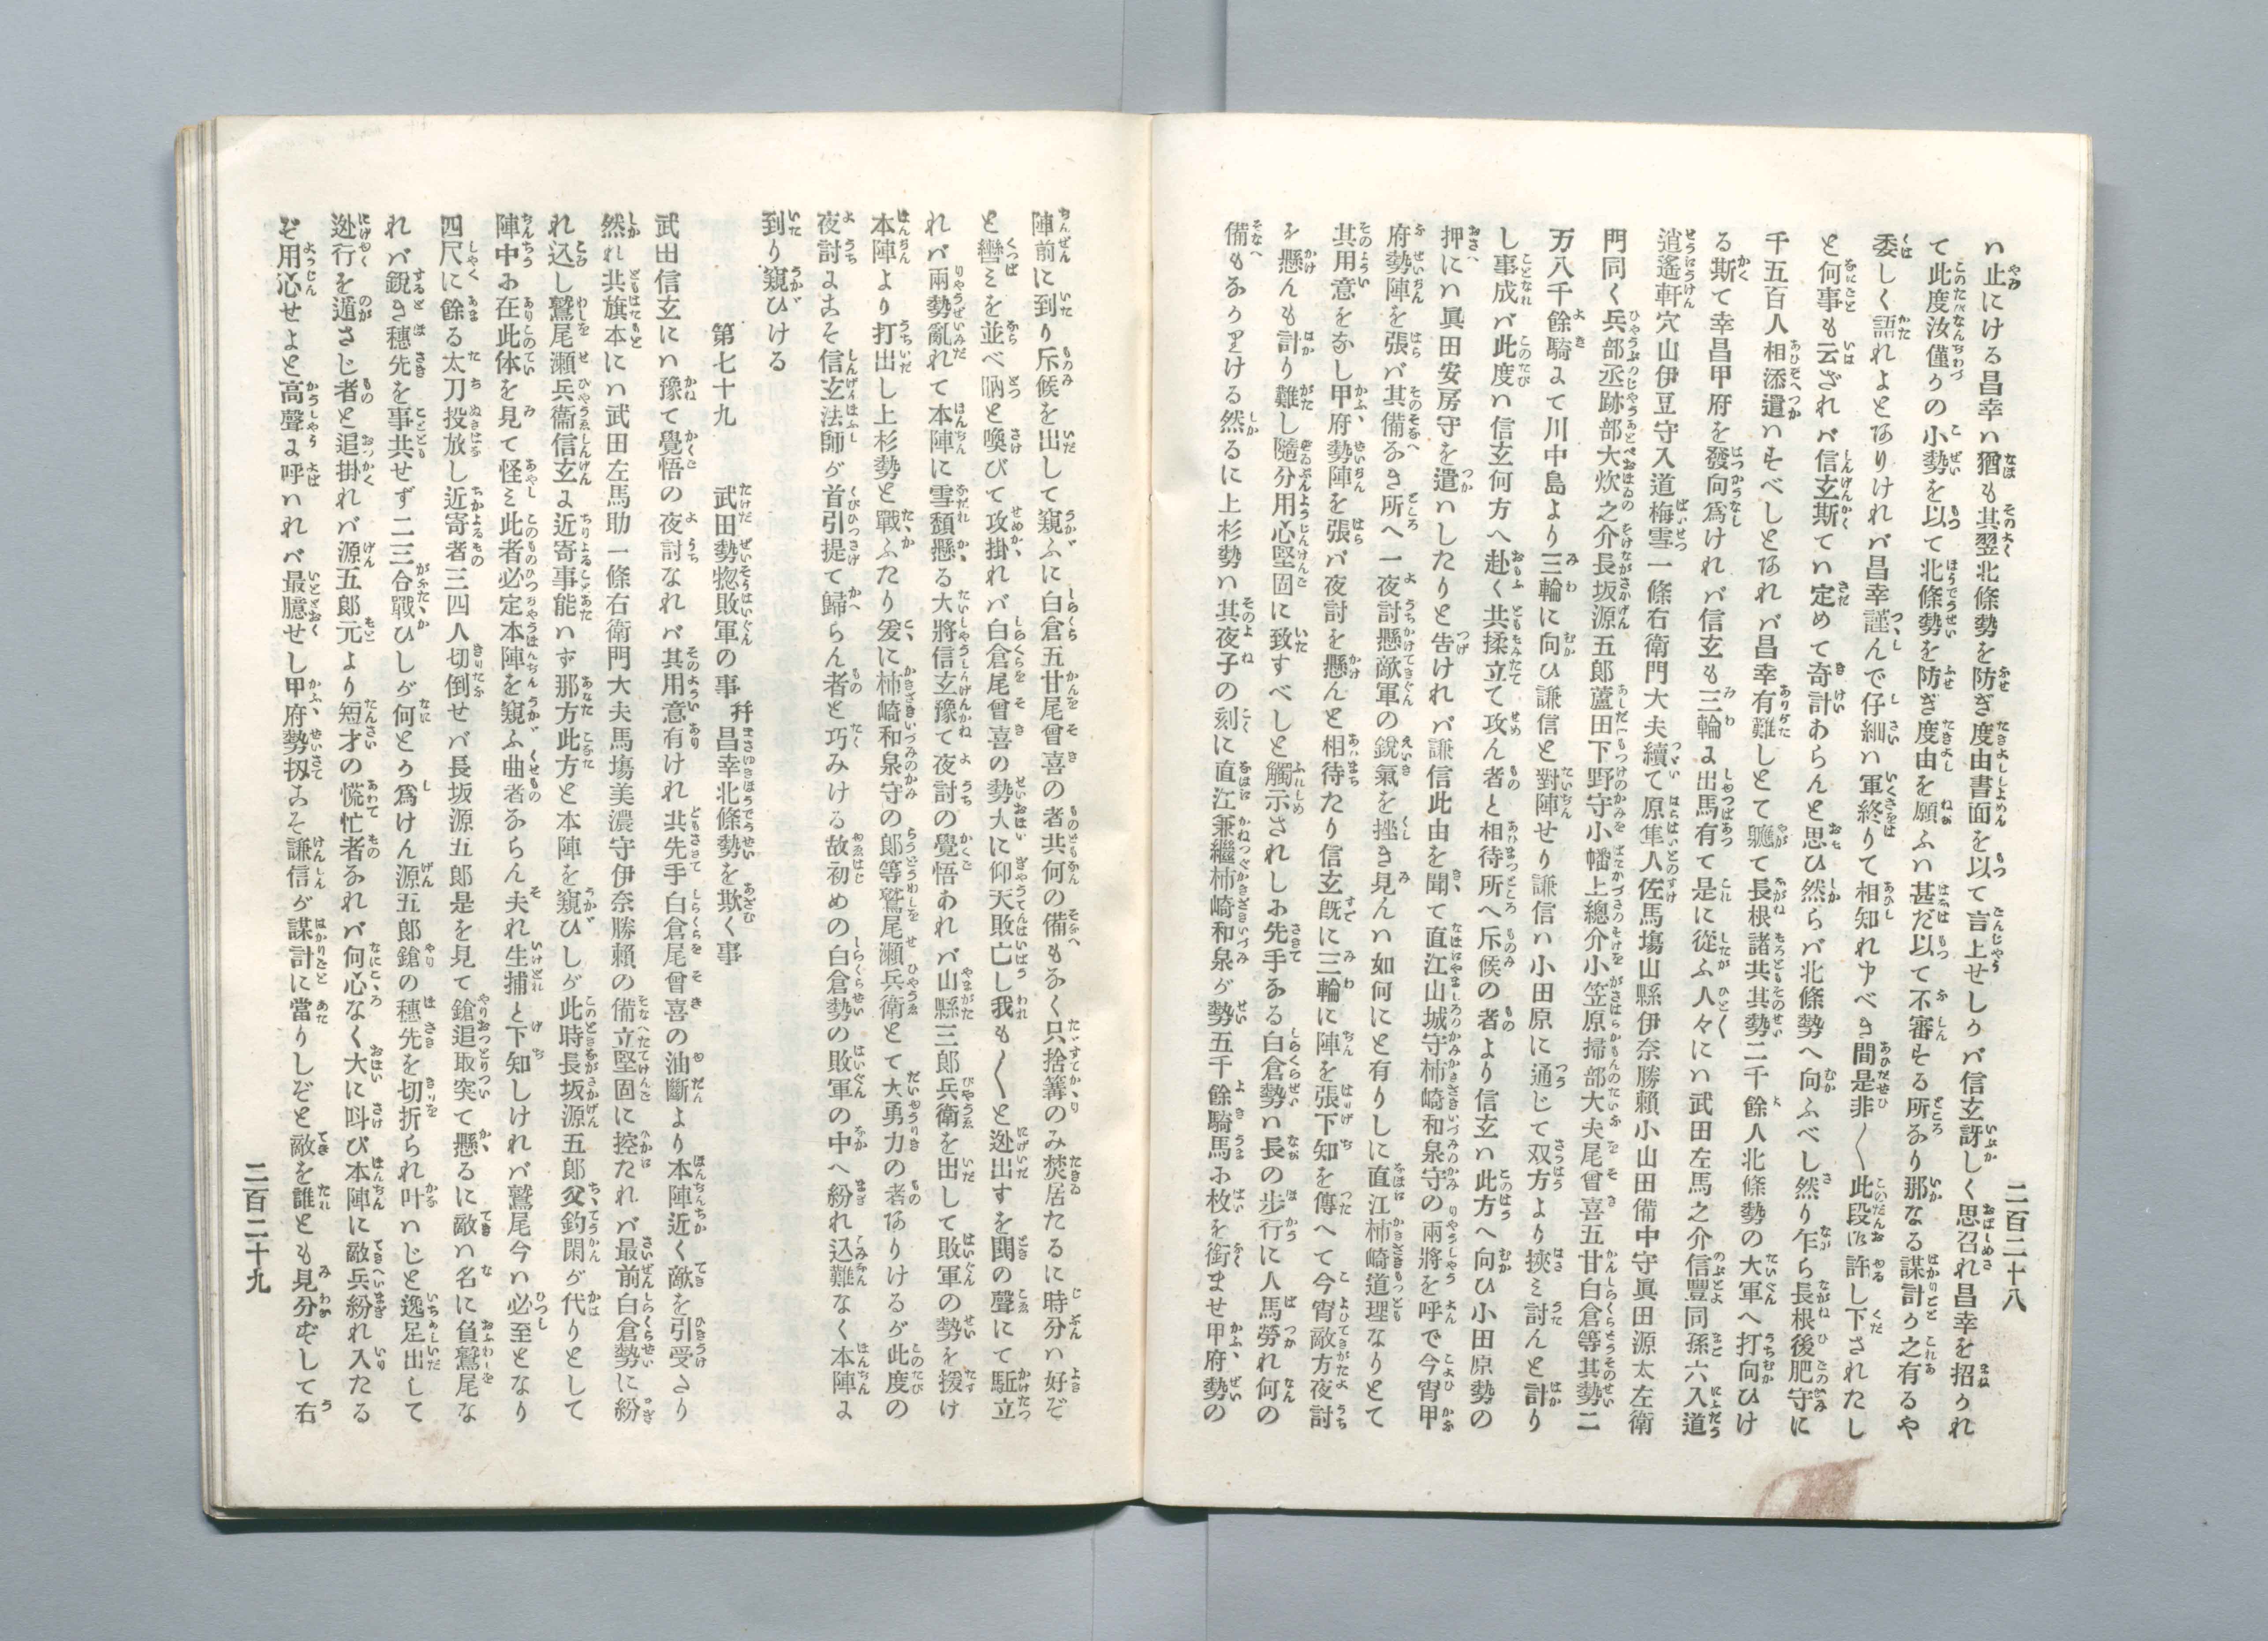 二百二十八
ハ止にける昌幸ハ猶も其翌北條勢を防ぎ度由書面を以て言上せしうバ信玄訝しく思召れ昌幸を招うれ
て此度汝僅うの小勢を以て北條勢を防ぎ度由を願ふハ甚だ以て不審する所なり那なる謀計う之有るや
委しく語れよとありけれバ昌幸謹んで仔細ハ軍終りて相知れ申べき間是非〳〵此段ハ許し下されたし
と何事も云ざれバ信玄斯てハ定めて奇計あらんと思ひ然らバ北條勢へ向ふべし然り乍ら長根後肥守に
千五百人相添遣ハすべしとあれバ昌幸有難しとて軈て長根諸共其勢二千餘人北條勢の大軍へ打向ひけ
る斯て幸昌甲府を發向爲けれバ信玄も三輪よ出馬有て是に從ふ人々にハ武田左馬之介信豐同孫六入道
逍遙軒穴山伊豆守入道梅雪一條右衛門大夫續て原隼人佐馬塲山縣伊奈勝頼小山田備中守眞田源太左衛
門同く兵部丞跡部大炊之介長坂源五郎蘆田下野守小幡上總介小笠原掃部大夫尾曾喜五甘白倉等其勢二
万八千餘騎よて川中島より三輪に向ひ謙信と對陣せり謙信ハ小田原に通じて双方より挾ミ討んと計り
し事成バ此度ハ信玄何方へ赴く共揉立て攻ん者と相待所へ斥候の者より信玄ハ此方へ向ひ小田原勢の
押にハ眞田安房守を遣ハしたりと告けれバ謙信此由を聞て直江山城守柿崎和泉守の兩將を呼で今宵甲
府勢陣を張バ其備なき所へ一夜討懸敵軍の銳氣を挫き見んハ如何にと有りしに直江柿崎道理なりとて
其用意をなし甲府勢陣を張バ夜討を懸んと相待たり信玄既に三輪に陣を張下知を傳へて今宵敵方夜討
を懸んも計り難し隨分用心堅固に致すべしと觸示されしお先手なる白倉勢ハ長の歩行に人馬勞れ何の
備もなうりける然るに上杉勢ハ其夜子の刻に直江兼繼柿崎和泉が勢五千餘騎馬お枚を銜ませ甲府勢の
陣前に到り斥候を出して窺ふに白倉五甘尾曾喜の者共何の備もなく只捨篝のみ焚居たるに時分ハ好ぞ
と轡ミを並べ吶と喚びて攻掛れバ白倉尾曾喜の勢大に仰天敗亡し我も〳〵と迯出すを鬨の聲にて駈立
れバ兩勢亂れて本陣に雪頽懸る大將信玄豫て夜討の覺悟あれバ山縣三郎兵衛を出して敗軍の勢を援け
本陣より打出し上杉勢と戰ふたり爰に柿崎和泉守の郎等鷲尾瀬兵衛とて大勇力の者ありけるが此度の
夜討よおそ信玄法師が首引提て歸らん者と巧みける故初めの白倉勢の敗軍の中へ紛れ込難なく本陣よ
到り窺ひける
第七十九　武田勢惣敗軍の事　幷　昌幸北條勢を欺く事
武田信玄にハ豫て覺悟の夜討なれバ其用意有けれ共先手白倉尾曾喜の油斷より本陣近く敵を引受さり
然れ共旗本にハ武田左馬助一條右衛門大夫馬塲美濃守伊奈勝頼の備立堅固に控たれバ最前白倉勢に紛
れ込し鷲尾瀬兵衞信玄よ近寄事能ハず那方此方と本陣を窺ひしが此時長坂源五郎父釣閑が代りとして
陣中お在此体を見て怪ミ此者必定本陣を窺ふ曲者ならん夫れ生捕と下知しけれバ鷲尾今ハ必至となり
四尺に餘る太刀投放し近寄者三四人切倒せバ長坂源五郎是を見て鎗追取突て懸るに敵ハ名に負鷲尾な
れバ鋭き穗先を事共せず二三合戰ひしが何とう爲けん源五郎鎗の穗先を切折られ叶ハじと逸足出して
迯行を遁さじ者と追掛れバ源五郎元より短才の慌忙者なれバ何心なく大に呌び本陣に敵兵紛れ入たる
ぞ用心せよと高聲よ呼ハれバ最臆せし甲府勢扨おそ謙信が謀計に當りしぞと敵を誰とも見分ずして右
二百二十九